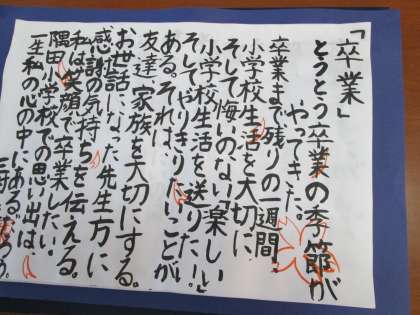 「卒業」
とうとう卒業の季節が
やってきた。
卒業まで残りの一週間
小学校生活を大切に
そして悔いのない「楽しい」
小学校生活を送りたい。
そしてやりきりたいことが
ある。それは、
友達、家族を大切にする。
お世話になった先生方に
感謝の気持ちを伝える。
私は笑顔で卒業したい。
隅田小学校での思い出は
一生私の心の中にあるだろう。